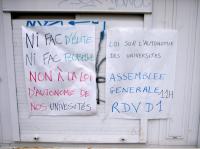 NI FAC D'ÉLITE
NI FAC POUBELLE
NON À LA LOI
D'AUTONOMIE DE
NOS UNIVERSITÉS
LOI SUR L'AUTONOMIE
DES UNIVERSITES
ASSEMBLEE
GENERALE 12H
RDV D1